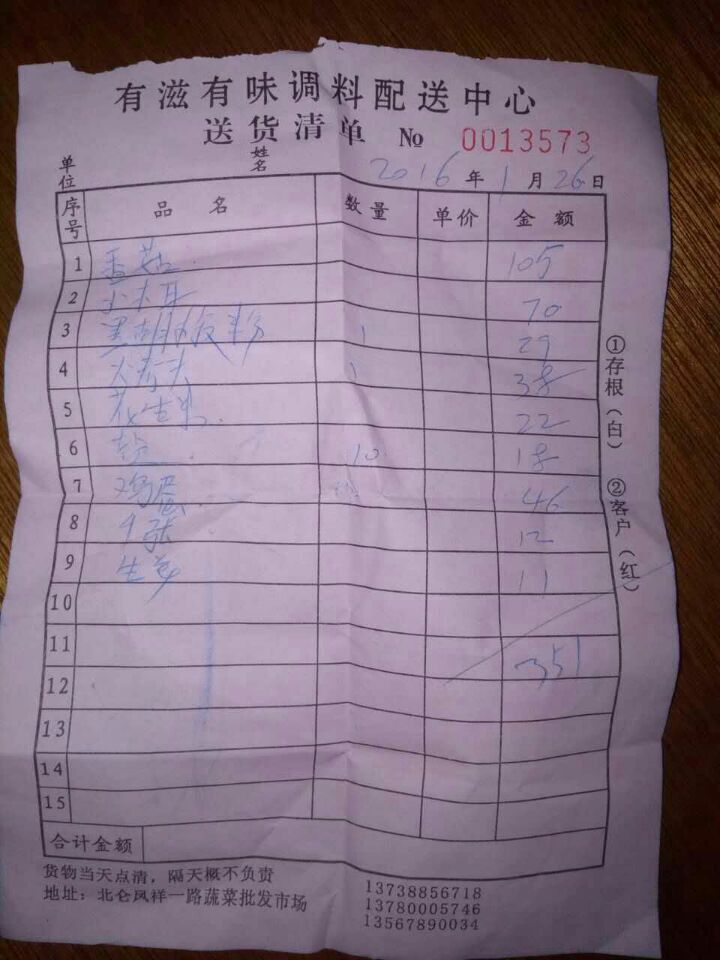 有滋有味调料配送中心
送货清单 № 0013573
单位 姓名 2016年1月26日
序号 品名 数量 单价 金额
1 香菇 105
2 小木耳 70
3 1 29
4 1 38
5 花生米 22
6 盐 10 18
7 鸡蛋 46
8 千张 12
9 生姜 11
10
11 351
12
13
14
15
合计金额
①存根(白) ②客户(红)
货物当天点清，隔天概不负责
地址：北仑凤祥一路蔬菜批发市场
13738856718
13780005746
13567890034